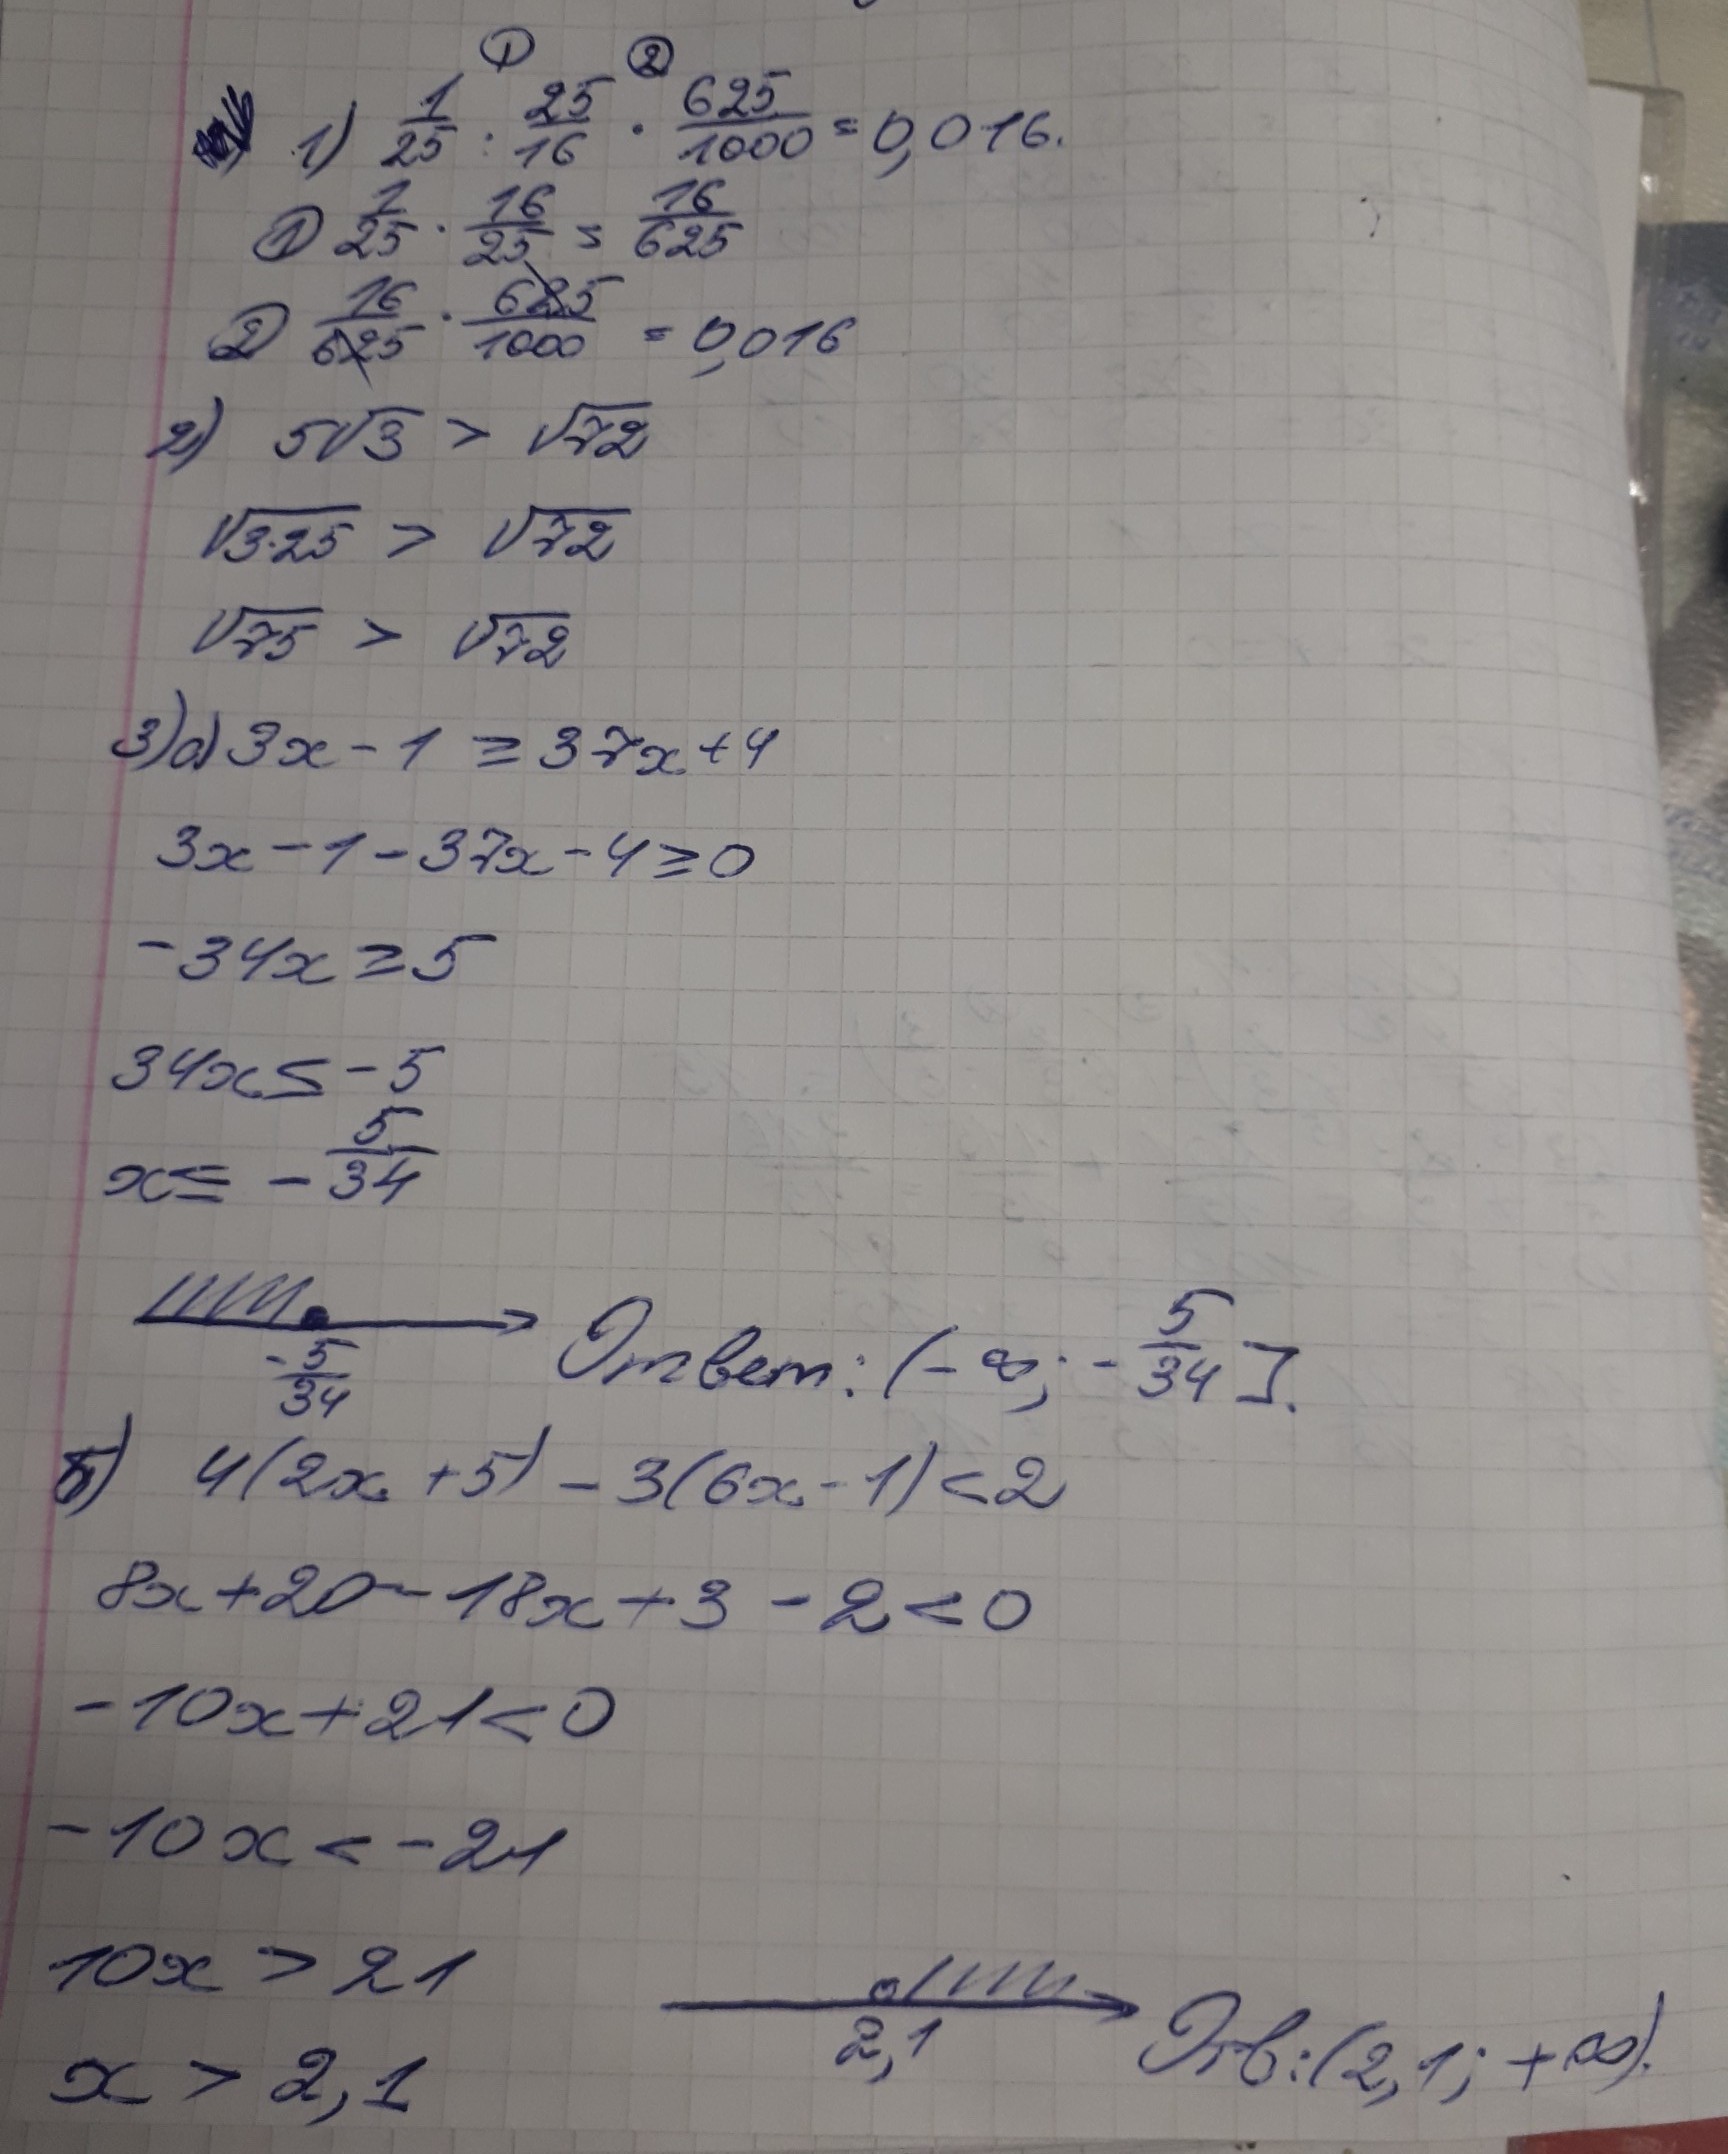 ① ②
1) 1/25 : 25/16 · 625/1000 = 0,016.
① 1/25 · 16/25 = 16/625
② 16/625 · 625/1000 = 0,016
2) 5√3 > √72
√3·25 > √72
√75 > √72
3) а) 3x - 1 ≥ 37x + 4
3x - 1 - 37x - 4 ≥ 0
-34x ≥ 5
34x ≤ -5
x ≤ - 5/34
- 5/34 Ответ: (-∞; - 5/34].
б) 4(2x + 5) - 3(6x - 1) < 2
8x + 20 - 18x + 3 - 2 < 0
-10x + 21 < 0
-10x < -21
10x > 21
2,1 Отв: (2,1; +∞).
x > 2,1